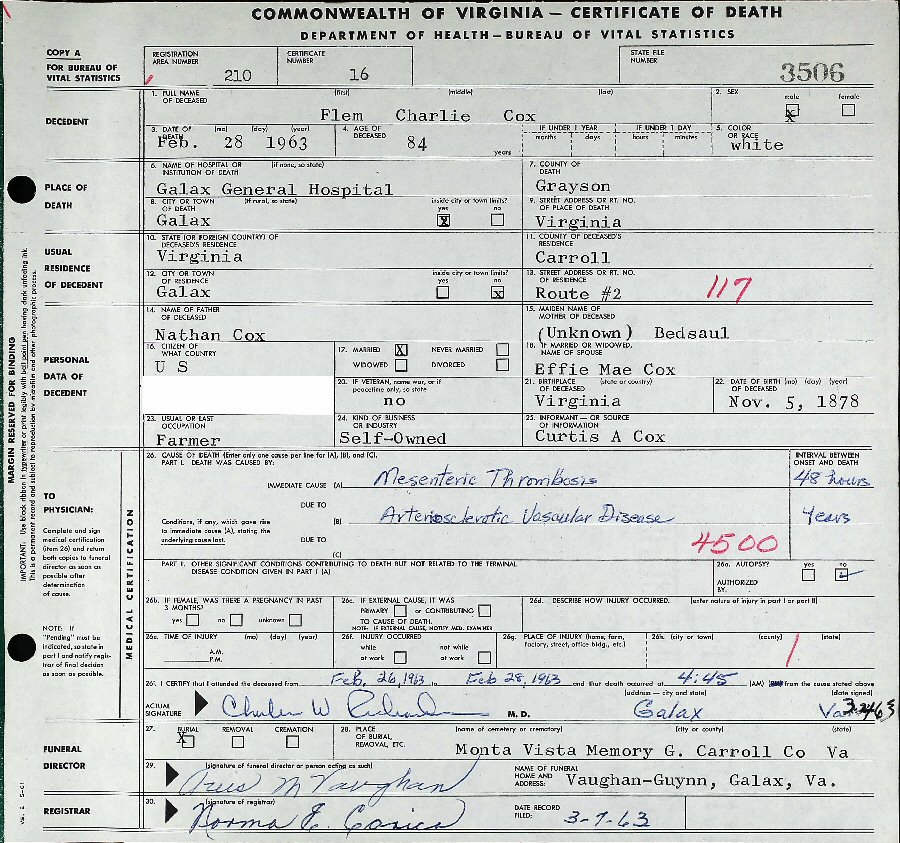 COMMONWEALTH OF VIRGINIA — CERTIFICATE OF DEATH
DEPARTMENT OF HEALTH — BUREAU OF VITAL STATISTICS
COPY A
FOR BUREAU OF VITAL STATISTICS
REGISTRATION AREA NUMBER 210
CERTIFICATE NUMBER 16
STATE FILE NUMBER 3506
DECEDENT
1. FULL NAME OF DECEASED (first) (middle) (last)
Flem Charlie Cox
2. SEX male X female
3. DATE OF DEATH (mo) (day) (year)
Feb. 28 1963
4. AGE OF DECEASED 84 years
IF UNDER 1 YEAR months days
IF UNDER 1 DAY hours minutes
5. COLOR OR RACE white
PLACE OF DEATH
6. NAME OF HOSPITAL OR INSTITUTION OF DEATH (if none, so state)
Galax General Hospital
7. COUNTY OF DEATH
Grayson
8. CITY OR TOWN OF DEATH (if rural, so state)
Galax
inside city or town limits? yes X no
9. STREET ADDRESS OR RT. NO. OF PLACE OF DEATH
Virginia
USUAL RESIDENCE OF DECEDENT
10. STATE (OR FOREIGN COUNTRY) OF DECEASED'S RESIDENCE
Virginia
11. COUNTY OF DECEASED'S RESIDENCE
Carroll
12. CITY OR TOWN OF RESIDENCE
Galax
inside city or town limits? yes no X
13. STREET ADDRESS OR RT. NO. OF RESIDENCE
Route #2
117
PERSONAL DATA OF DECEDENT
14. NAME OF FATHER OF DECEASED
Nathan Cox
15. MAIDEN NAME OF MOTHER OF DECEASED
(Unknown) Bedsaul
16. CITIZEN OF WHAT COUNTRY
U S
17. MARRIED X NEVER MARRIED
WIDOWED DIVORCED
18. IF MARRIED OR WIDOWED, NAME OF SPOUSE
Effie Mae Cox
20. IF VETERAN, name war, or if peacetime only, so state
no
21. BIRTHPLACE OF DECEASED (state or country)
Virginia
22. DATE OF BIRTH (mo) (day) (year) OF DECEASED
Nov. 5, 1878
23. USUAL OR LAST OCCUPATION
Farmer
24. KIND OF BUSINESS OR INDUSTRY
Self-Owned
25. INFORMANT — OR SOURCE OF INFORMATION
Curtis A Cox
MARGIN RESERVED FOR BINDING
IMPORTANT: Use black ribbon in typewriter or print legibly with ball point pen having dark unfading ink
This is a permanent record and subject to reproduction by microfilm and other photographic process.
TO PHYSICIAN:
Complete and sign medical certification (item 26) and return both copies to funeral director as soon as possible after determination of cause.
NOTE: If "Pending" must be indicated, so state in part I and notify registrar of final decision as soon as possible.
MEDICAL CERTIFICATION
26. CAUSE OF DEATH (Enter only one cause per line for (A), (B), and (C).
PART I. DEATH WAS CAUSED BY:
INTERVAL BETWEEN ONSET AND DEATH
IMMEDIATE CAUSE (A) Mesenteric Thrombosis 48 hours
DUE TO
(B) Arteriosclerotic Vascular Disease Years
Conditions, if any, which gave rise to immediate cause (A), stating the underlying cause last.
DUE TO
(C)
4500
PART II. OTHER SIGNIFICANT CONDITIONS CONTRIBUTING TO DEATH BUT NOT RELATED TO THE TERMINAL DISEASE CONDITION GIVEN IN PART I (A)
26a. AUTOPSY? yes no
AUTHORIZED BY:
26b. IF FEMALE, WAS THERE A PREGNANCY IN PAST 3 MONTHS?
yes no unknown
26c. IF EXTERNAL CAUSE, IT WAS
PRIMARY or CONTRIBUTING
TO CAUSE OF DEATH.
NOTE: IF EXTERNAL CAUSE, NOTIFY MED. EXAMINER
26d. DESCRIBE HOW INJURY OCCURRED. (enter nature of injury in part I or part II)
26e. TIME OF INJURY (mo) (day) (year)
A.M.
P.M.
26f. INJURY OCCURRED
while at work not while at work
26g. PLACE OF INJURY (home, farm, factory, street, office bldg., etc.)
26h. (city or town) (county) (state)
26i. I CERTIFY that I attended the deceased from Feb. 26, 1963 to Feb 28, 1963 and that death occurred at 4:45 (AM) from the cause stated above
ACTUAL SIGNATURE
Charles W M. D.
(address — city and state) (date signed)
Galax Va
FUNERAL DIRECTOR
27. BURIAL X REMOVAL CREMATION
28. PLACE OF BURIAL, REMOVAL, ETC. (name of cemetery or crematory) (city or county) (state)
Monta Vista Memory G. Carroll Co Va
29. (signature of funeral director or person acting as such)
M Vaughan
NAME OF FUNERAL HOME AND ADDRESS: Vaughan-Guynn, Galax, Va.
REGISTRAR
30. (signature of registrar)
Norma
DATE RECORD FILED: 3-7-63